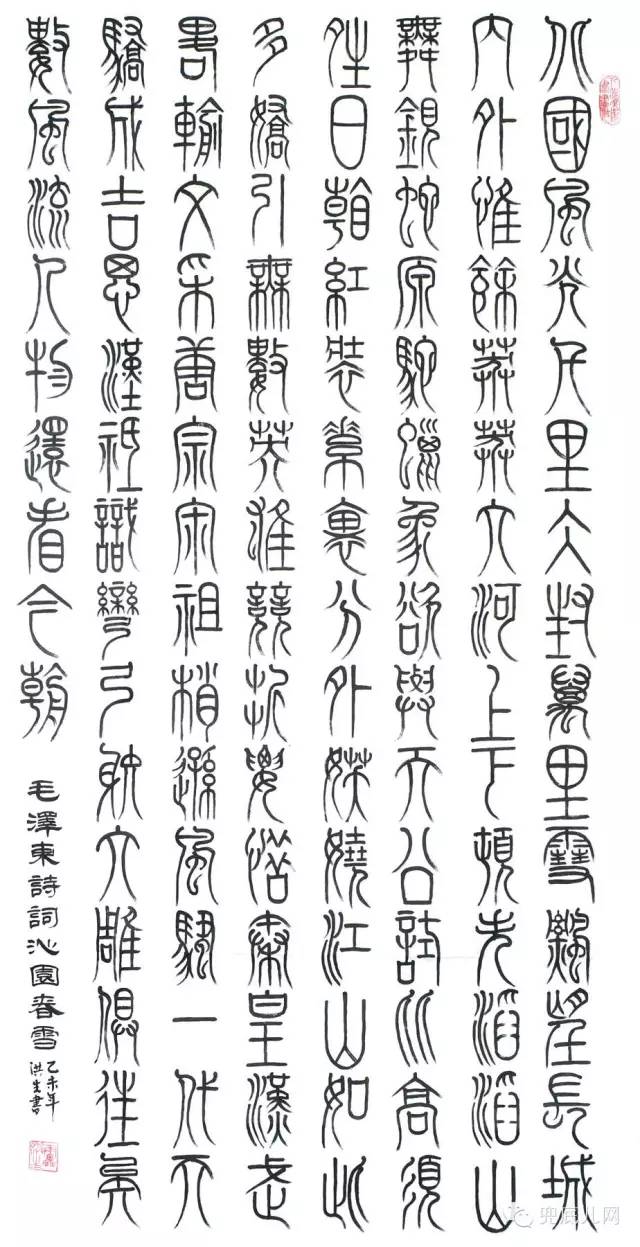 北國風光千里冰封萬里雪飄望長城
內外惟餘莽莽大河上下頓失滔滔山
舞銀蛇原馳蠟象欲與天公試比高須
晴日看紅裝素裹分外妖嬈江山如此
多嬌引無數英雄競折腰惜秦皇漢武
略輸文采唐宗宋祖稍遜風騷一代天
驕成吉思汗祗識彎弓射大雕俱往矣
數風流人物還看今朝
毛澤東詩詞沁園春雪
乙未年
洪生書